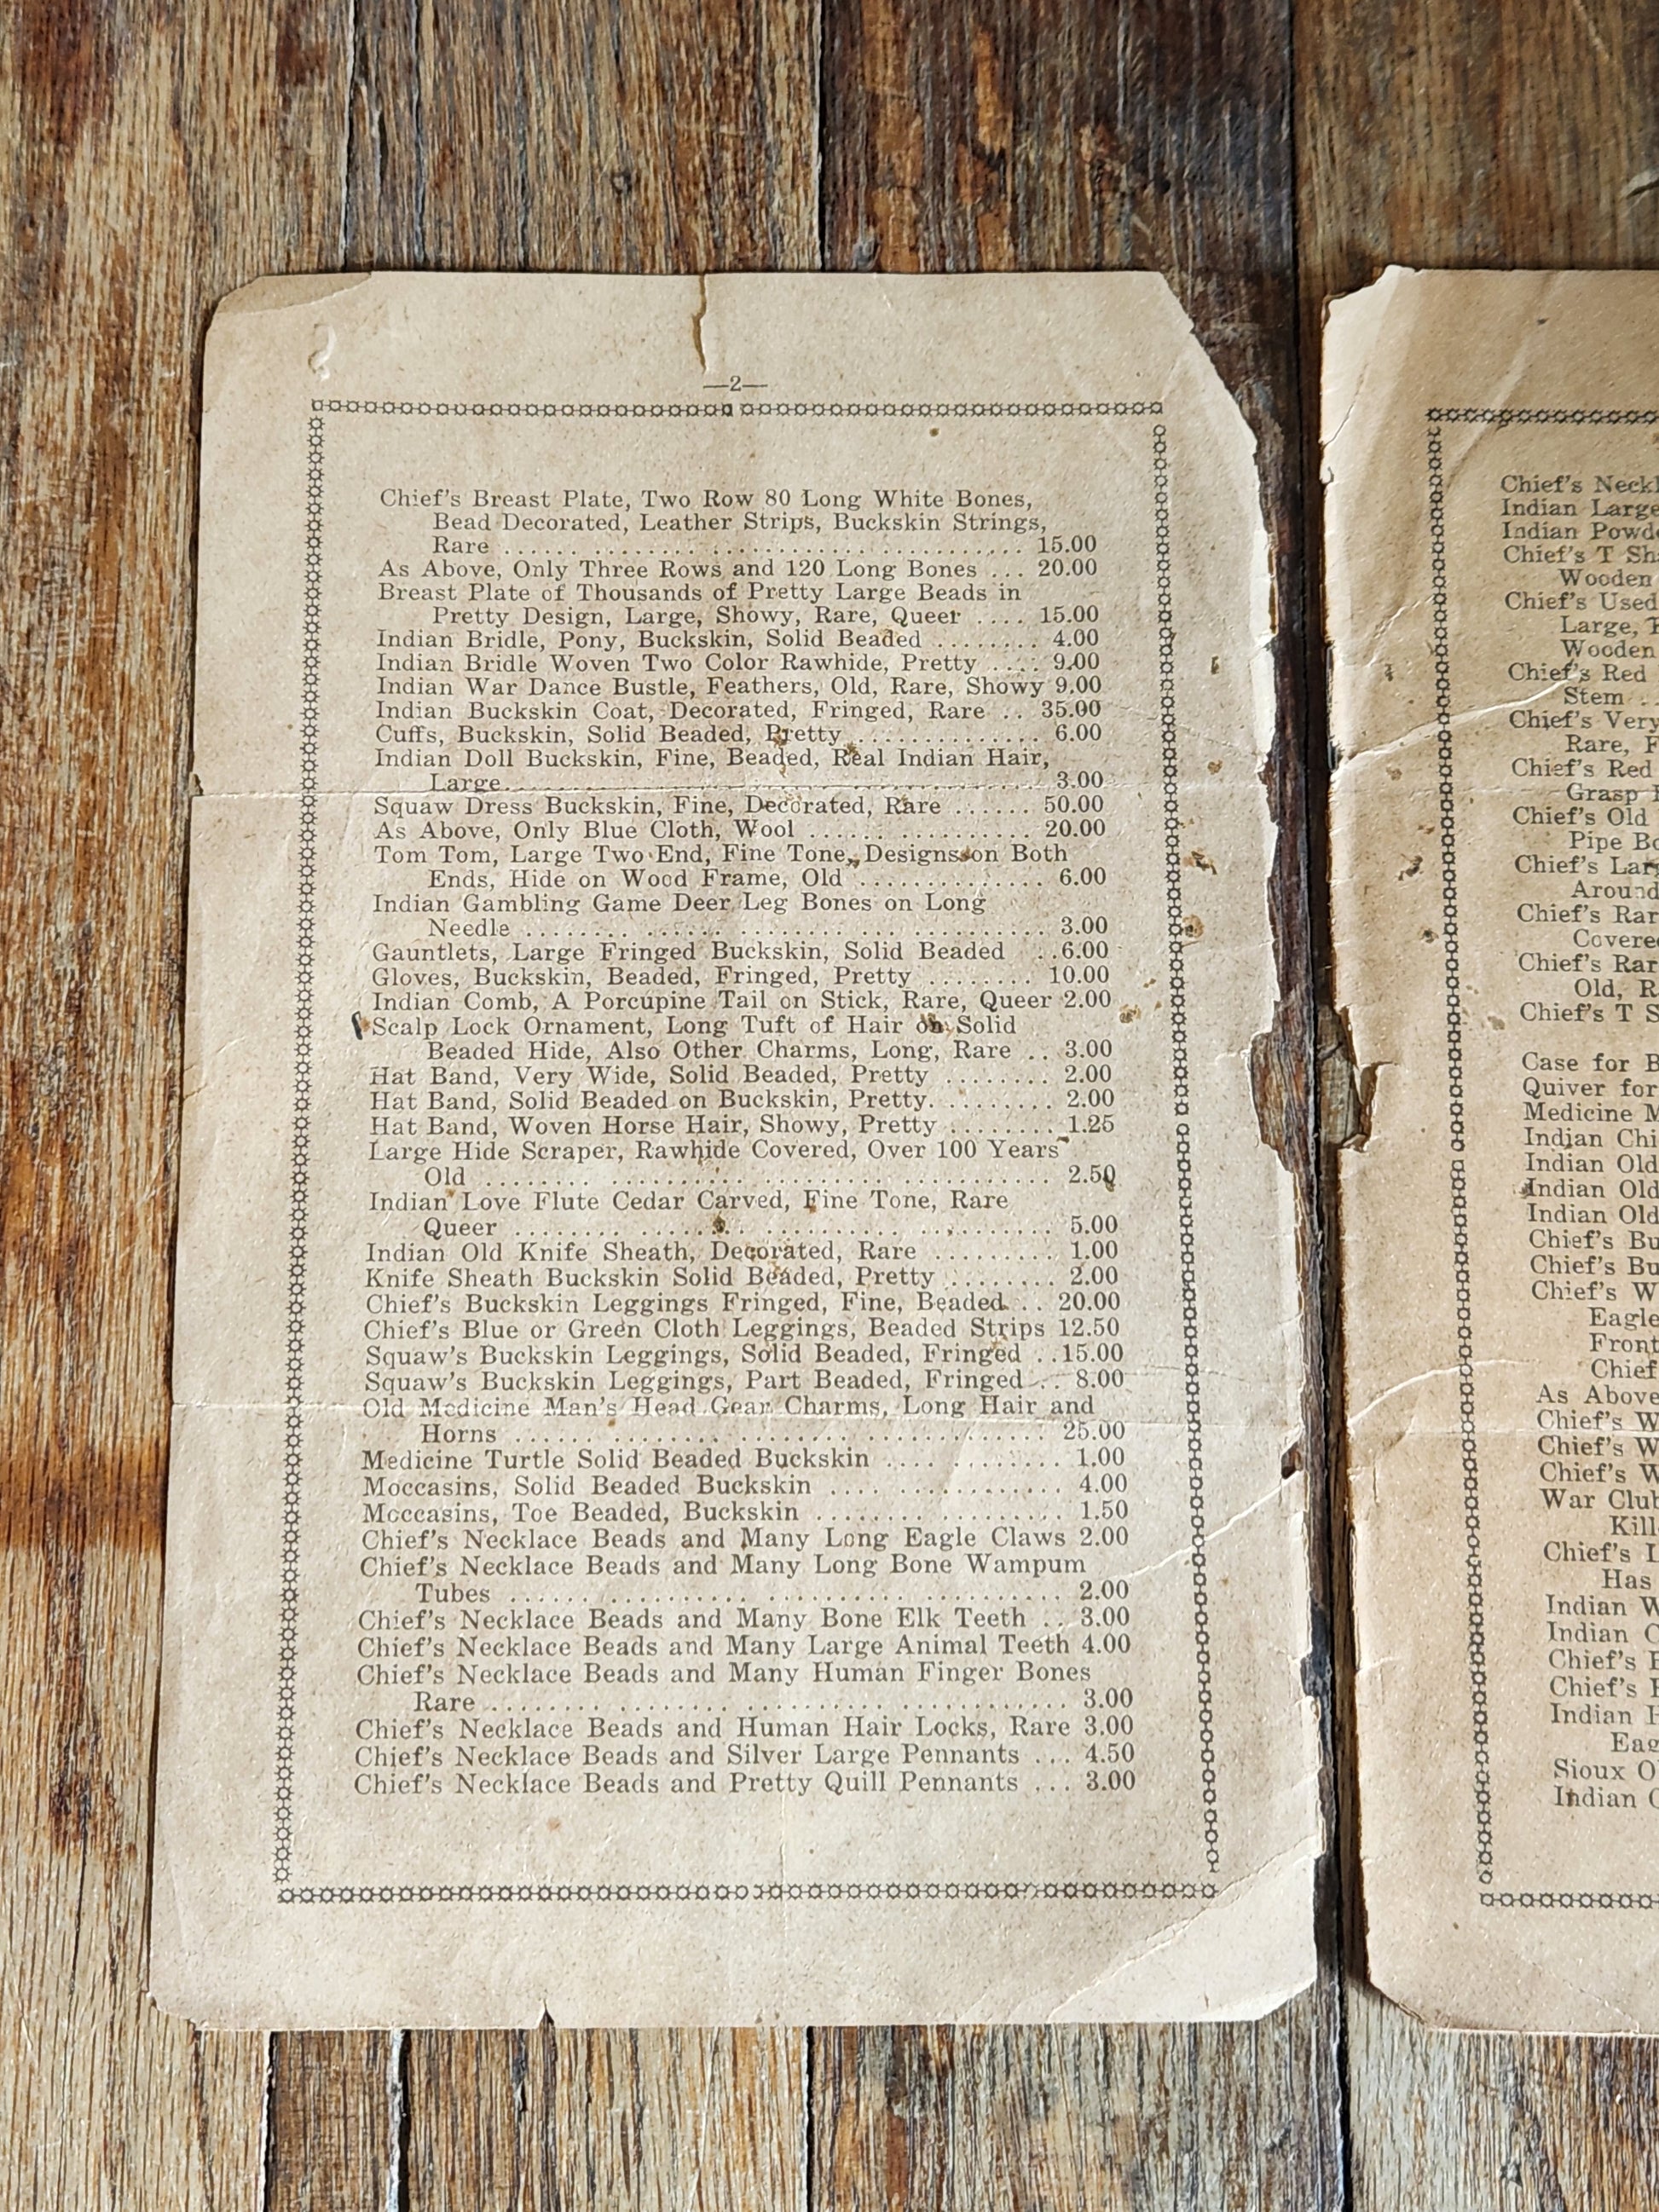 —2—
Chief's Breast Plate, Two Row 80 Long White Bones,
Bead Decorated, Leather Strips, Buckskin Strings,
Rare .................................... 15.00
As Above, Only Three Rows and 120 Long Bones ... 20.00
Breast Plate of Thousands of Pretty Large Beads in
Pretty Design, Large, Showy, Rare, Queer .... 15.00
Indian Bridle, Pony, Buckskin, Solid Beaded ........ 4.00
Indian Bridle Woven Two Color Rawhide, Pretty .... 9.00
Indian War Dance Bustle, Feathers, Old, Rare, Showy 9.00
Indian Buckskin Coat, Decorated, Fringed, Rare .. 35.00
Cuffs, Buckskin, Solid Beaded, Pretty .............. 6.00
Indian Doll Buckskin, Fine, Beaded, Real Indian Hair,
Large...................................... 3.00
Squaw Dress Buckskin, Fine, Decorated, Rare ...... 50.00
As Above, Only Blue Cloth, Wool ................. 20.00
Tom Tom, Large Two End, Fine Tone, Designs on Both
Ends, Hide on Wood Frame, Old .............. 6.00
Indian Gambling Game Deer Leg Bones on Long
Needle .................................... 3.00
Gauntlets, Large Fringed Buckskin, Solid Beaded ..6.00
Gloves, Buckskin, Beaded, Fringed, Pretty ........ 10.00
Indian Comb, A Porcupine Tail on Stick, Rare, Queer 2.00
Scalp Lock Ornament, Long Tuft of Hair on Solid
Beaded Hide, Also Other Charms, Long, Rare .. 3.00
Hat Band, Very Wide, Solid Beaded, Pretty ........ 2.00
Hat Band, Solid Beaded on Buckskin, Pretty. ........ 2.00
Hat Band, Woven Horse Hair, Showy, Pretty ........ 1.25
Large Hide Scraper, Rawhide Covered, Over 100 Years
Old ....................................... 2.50
Indian Love Flute Cedar Carved, Fine Tone, Rare
Queer ..................................... 5.00
Indian Old Knife Sheath, Decorated, Rare ......... 1.00
Knife Sheath Buckskin Solid Beaded, Pretty ........ 2.00
Chief's Buckskin Leggings Fringed, Fine, Beaded. .. 20.00
Chief's Blue or Green Cloth Leggings, Beaded Strips 12.50
Squaw's Buckskin Leggings, Solid Beaded, Fringed ..15.00
Squaw's Buckskin Leggings, Part Beaded, Fringed .. 8.00
Old Medicine Man's Head Gear Charms, Long Hair and
Horns ..................................... 25.00
Medicine Turtle Solid Beaded Buckskin ............ 1.00
Moccasins, Solid Beaded Buckskin ................. 4.00
Moccasins, Toe Beaded, Buckskin .................. 1.50
Chief's Necklace Beads and Many Long Eagle Claws 2.00
Chief's Necklace Beads and Many Long Bone Wampum
Tubes ..................................... 2.00
Chief's Necklace Beads and Many Bone Elk Teeth .. 3.00
Chief's Necklace Beads and Many Large Animal Teeth 4.00
Chief's Necklace Beads and Many Human Finger Bones
Rare ...................................... 3.00
Chief's Necklace Beads and Human Hair Locks, Rare 3.00
Chief's Necklace Beads and Silver Large Pennants ... 4.50
Chief's Necklace Beads and Pretty Quill Pennants ... 3.00
Chief's
Indian Large
Indian
Chief's T
Wooden
Chief's Used
Large,
Wooden
Chief's Red
Stem ..
Chief's Very
Rare,
Chief's Red
Grasp
Chief's Old
Pipe
Chief's
Around
Chief's
Covered
Chief's
Old,
Chief's T
Case for
Quiver for
Medicine
Indian
Indian Old
Indian Old
Indian Old
Chief's
Chief's
Chief's
Eagle
Front
Chief
As Above
Chief's
Chief's
Chief's
War Club
Chief's
Has
Indian
Indian
Chief's
Chief's
Indian
Sioux
Indian